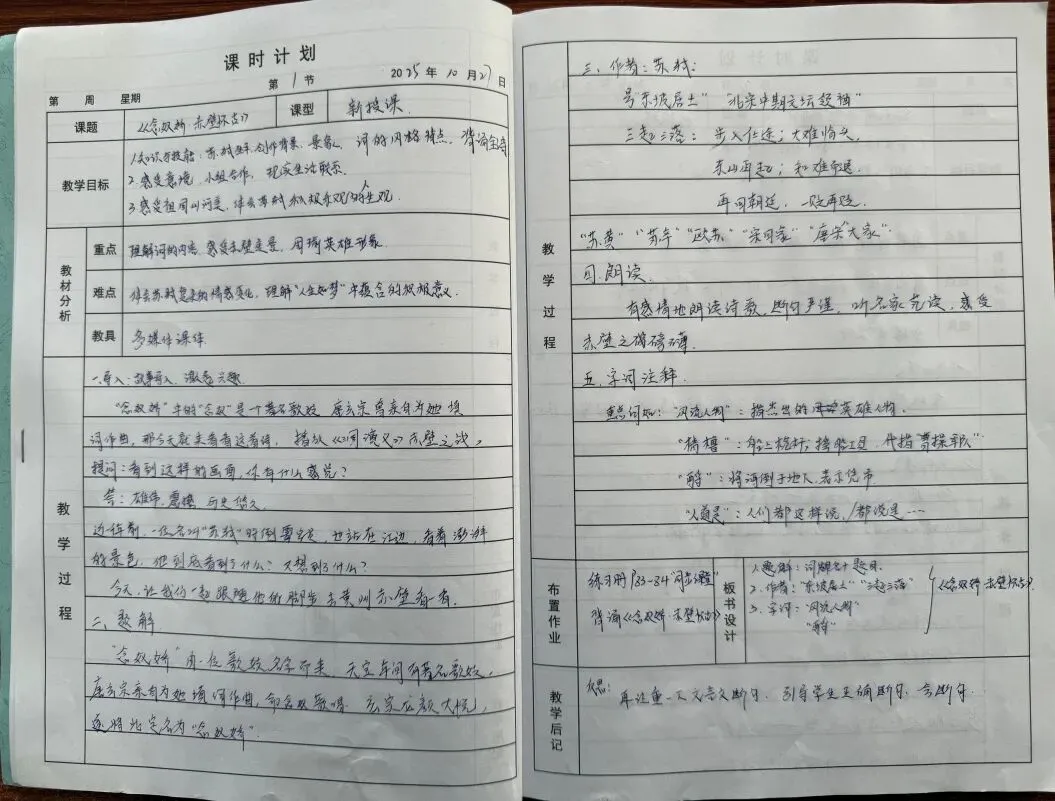 课时计划
第 1 节 2025 年 10 月 27 日
第 周 星期
课题 《念奴娇·赤壁怀古》 课型 新授课
教学目标
1.知识与技能：苏轼生平、创作背景、景象、词的风格特点，背诵全词
2.感受意境，小组合作，现实生活联系.
3.感受祖国山河美，体会苏轼积极乐观的人生观.
教材分析
重点 理解词的内容，感受赤壁之景，周瑜英雄形象.
难点 体会苏轼复杂的情感变化，理解“人生如梦”中蕴含的积极意义.
教具 多媒体课件.
教学过程
一.导入：故事导入，激起兴趣.
“念奴娇”中的“念奴”是一个著名歌妓 唐玄宗曾亲自为她填
词作曲，那今天就来看看这首词，播放《三国演义》赤壁之战，
提问：看到这样的画面，你有什么感觉？
答：雄伟、震撼 历史悠久
一位名叫“苏轼”的 也站在江边，看着澎湃
的景色，他到底看到了什么？又想到了什么？
今天，让我们一起跟随他的脚步去黄州赤壁看看.
二、题解
“念奴娇”由一位歌妓名字而来，天宝年间有著名歌妓，
唐玄宗亲自为她填词作曲，命念奴歌唱，玄宗龙颜大悦，
遂将此定名为“念奴娇”.
三、作者：苏轼：
号“东坡居士” “北宋中期文坛领袖”
三起三落： 步入仕途；大难临头.
东山再起；和难
再回朝廷，一贬再贬.
“苏黄” “苏辛” “欧苏” “宋四家” “唐宋八大家”.
教学过程
四.朗读.
有感情地朗读诗歌，断句严谨，听名家范读，感受
赤壁之磅礴.
五、字词注释.
重点词如：“风流人物”：指杰出的英雄人物.
“樯橹”：船上桅杆；摇船工具 代指“曹操军队”
“酹”：将酒倒于地下，表示凭吊
“人道是”：人们都这样说，/都说是……
布置作业
练习册P33-34“同步课堂”
背诵《念奴娇·赤壁怀古》
板书设计
1.题解：词牌名+题目.
2.作者：“东坡居士” “三起三落”
3.字词：“风流人物”
“酹”
《念奴娇·赤壁怀古》
教学后记
反思：再注重一下文言文断句，引导学生正确断句、会断句.